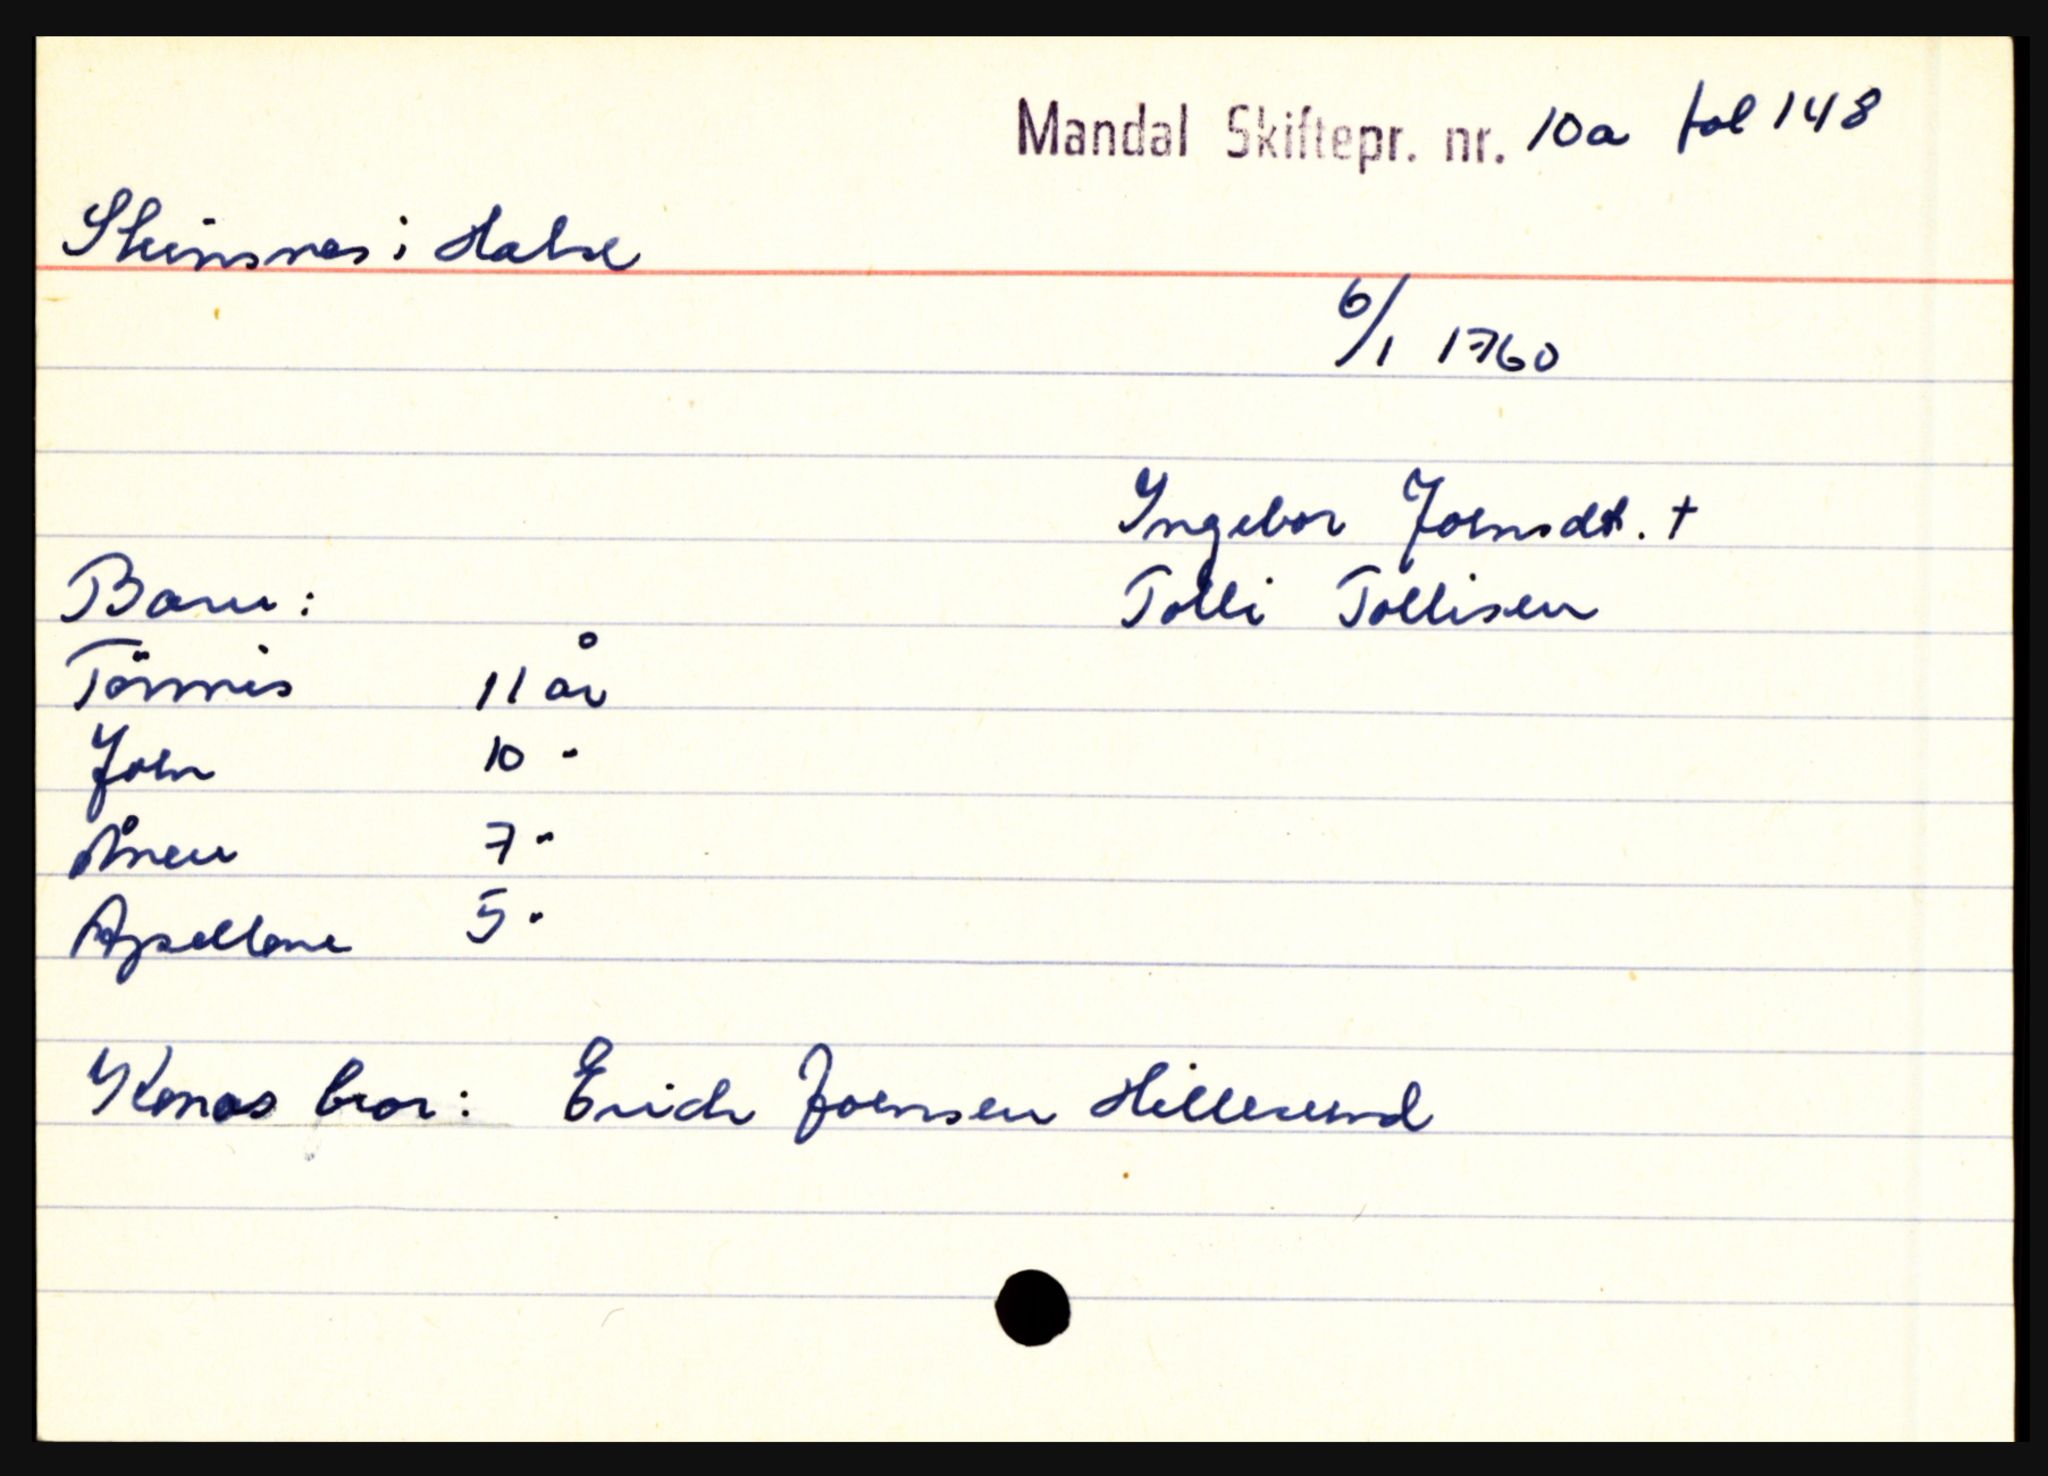 Mandal Skiftepr. nr. 10a fol 148
Steinsnes i Halse
6/1 1760
Ingebor Joensdt. +
Barn:
Tolli Tollisen
Tönnis 11 år
Joen 10 "
Ånen 7 "
Apsellone 5 "
Konas bror: Erich Joensen Hillesund